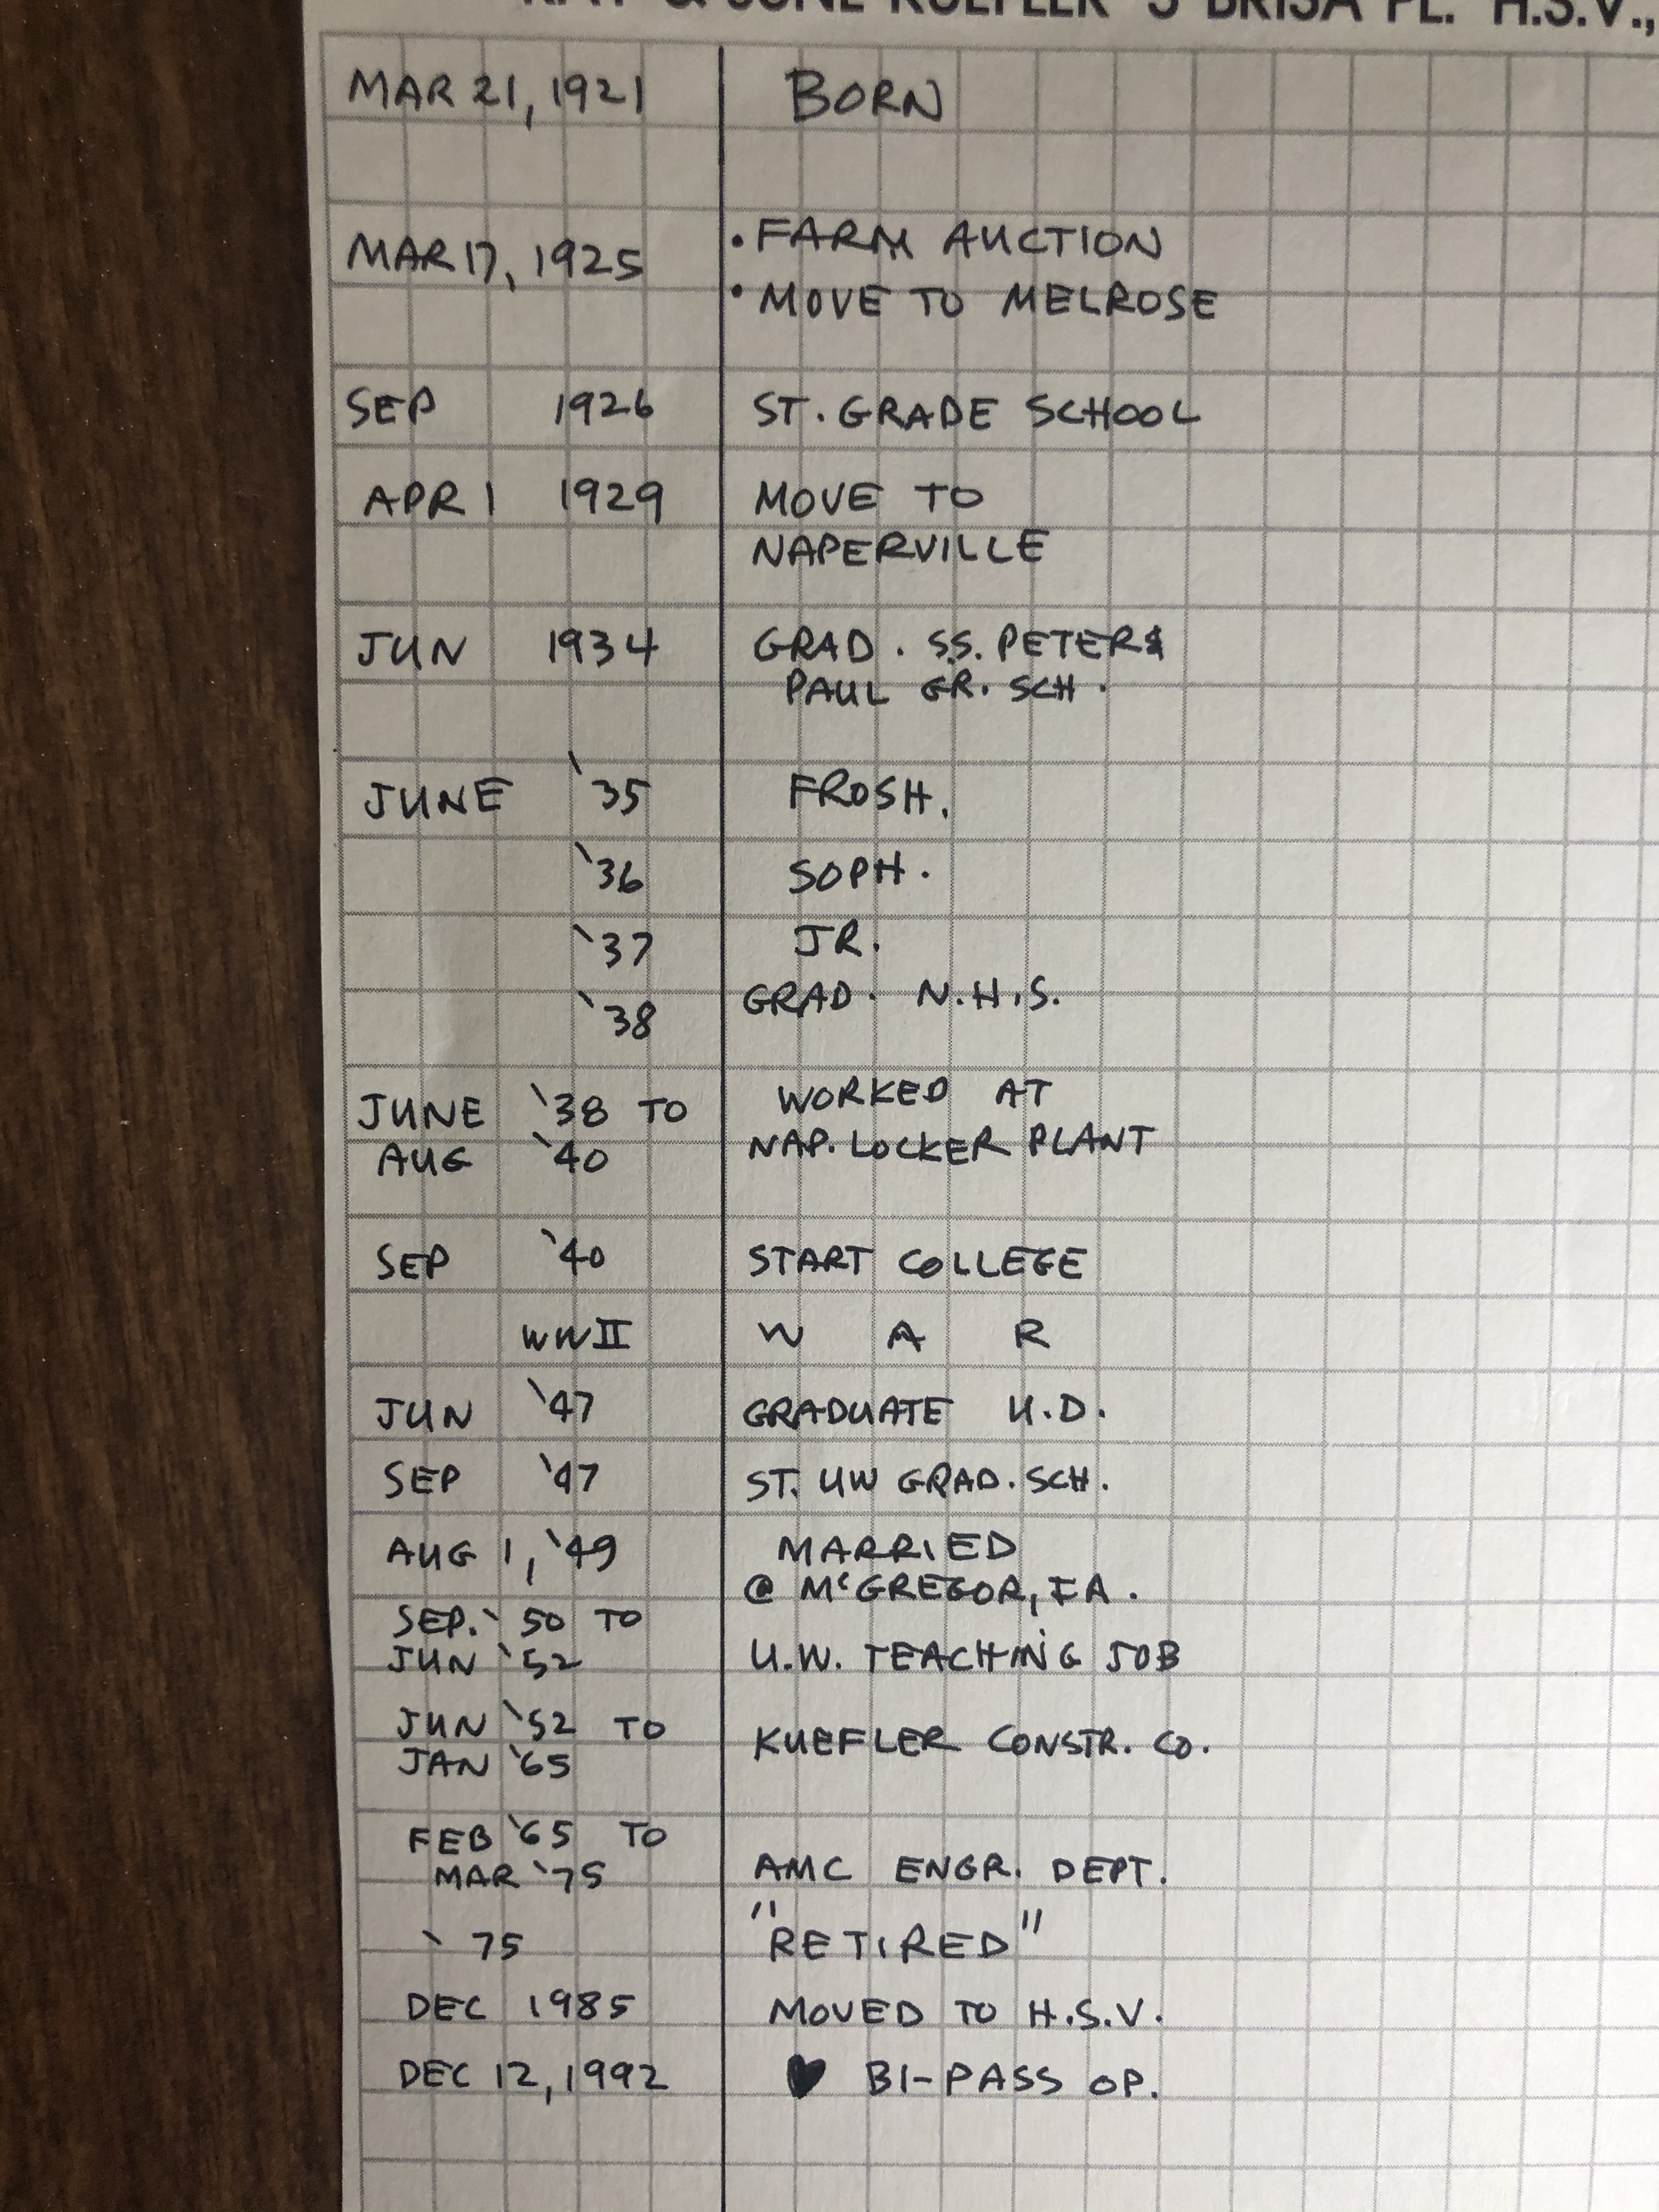 & JUNE KUEFLER 3 BRISA PL. H.S.V.,
MAR 21, 1921 BORN
MAR 17, 1925 • FARM AUCTION
• MOVE TO MELROSE
SEP 1926 ST. GRADE SCHOOL
APR 1 1929 MOVE TO
NAPERVILLE
JUN 1934 GRAD. SS. PETER &
PAUL GR. SCH.
JUNE '35 FROSH.
'36 SOPH.
'37 JR.
'38 GRAD. N.H.S.
JUNE '38 TO WORKED AT
AUG '40 NAP. LOCKER PLANT
SEP '40 START COLLEGE
WWII W A R
JUN '47 GRADUATE U.D.
SEP '47 ST. UW GRAD. SCH.
AUG 1, '49 MARRIED
@ McGREGOR, IA.
SEP. '50 TO
JUN '52 U.W. TEACHING JOB
JUN '52 TO KUEFLER CONSTR. CO.
JAN '65
FEB '65 TO
MAR '75 AMC ENGR. DEPT.
'75 "RETIRED"
DEC 1985 MOVED TO H.S.V.
DEC 12, 1992 ♥ BI-PASS OP.